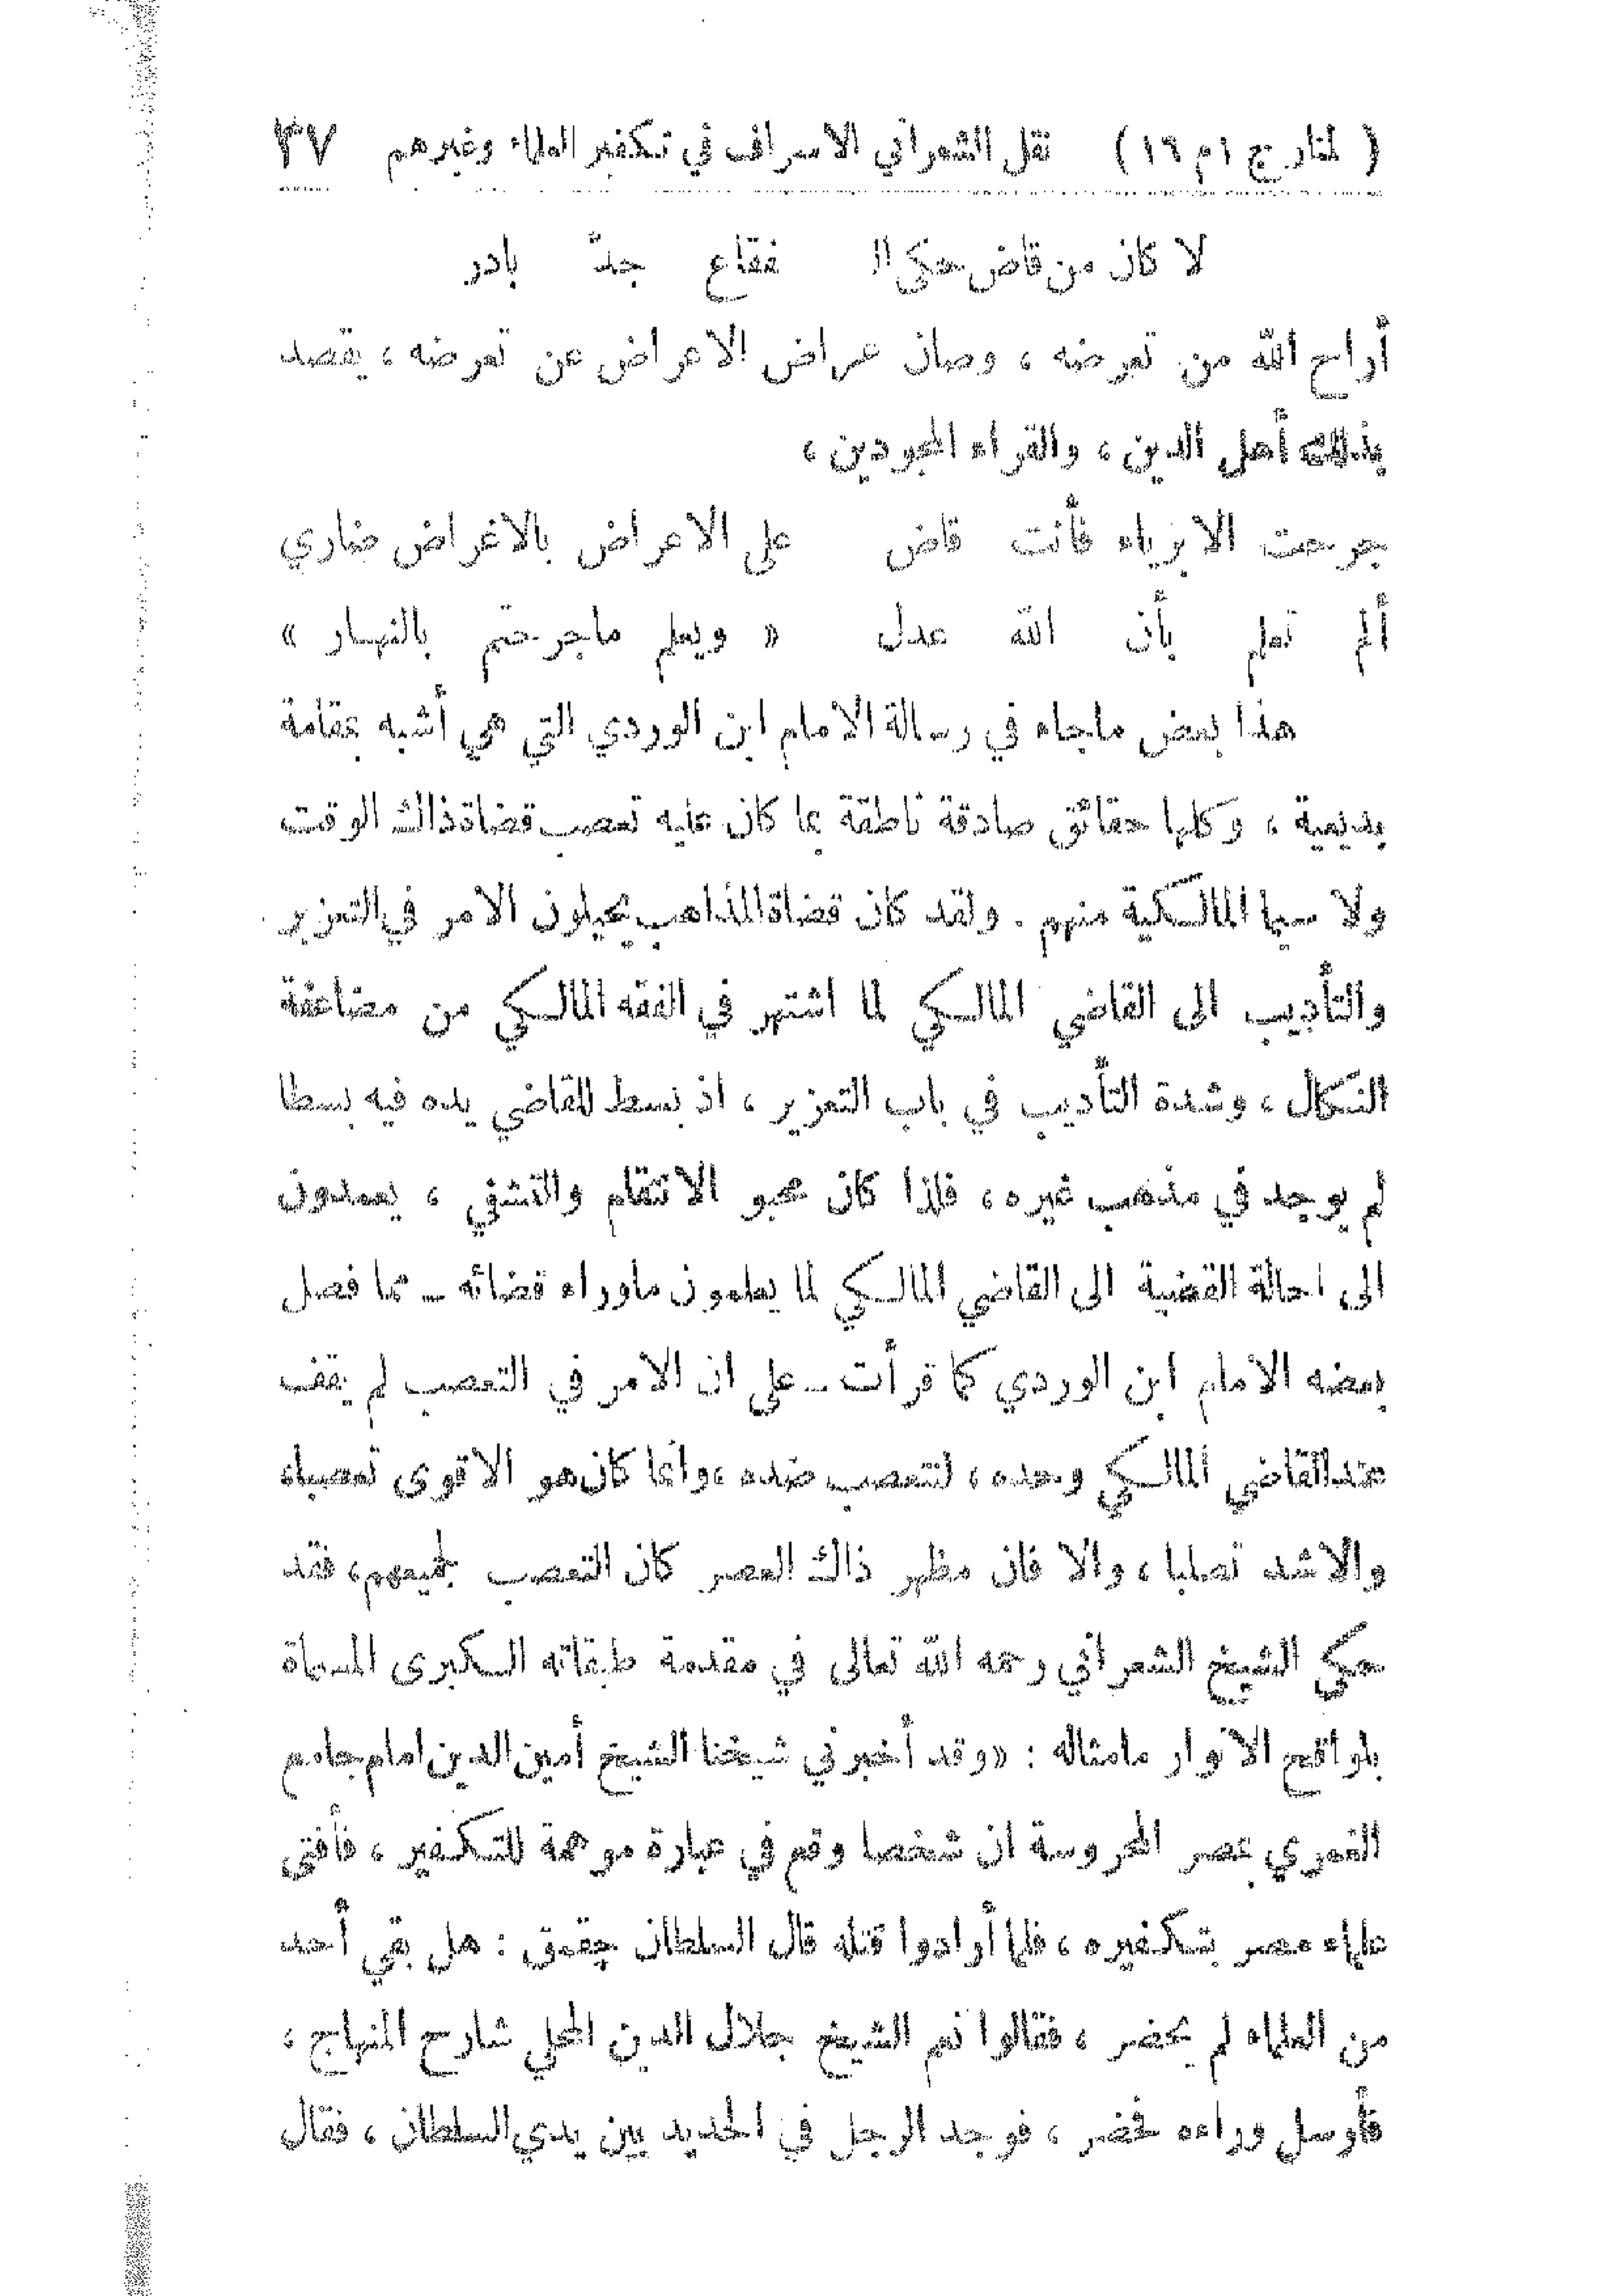 ( المنار ج ١ م ١٦ ) نقل الشعراني الاسراف في تكفير العلماء وغيرهم ٣٧
لا كان من قاض حكى ال فقاع جدّ بادر
أراح الله من تعرضه ، وصان عراض الاعراض عن تعرضه ، يقصد
بذلك أهل الدين ، والقراء المجودين ،
جرحت الابرياء فأنت قاض على الاعراض بالاغراض ضاري
ألم تعلم بأن الله عدل « ويعلم ماجرحتم بالنهار »
هذا بعض ماجاء في رسالة الامام ابن الوردي التي هي أشبه بمقامة
بديعية ، وكلها حقائق صادقة ناطقة بما كان عليه تعصب قضاة ذاك الوقت
ولا سيما المالكية منهم . ولقد كان قضاة المذاهب يحيلون الامر في التعزير
والتأديب الى القاضي المالكي لما اشتهر في الفقه المالكي من مضاعفة
النكال ، وشدة التأديب في باب التعزير ، اذ بسط للقاضي يده فيه بسطا
لم يوجد في مذهب غيره ، فلذا كان محبو الانتقام والتشفي ، يعمدون
الى احالة القضية الى القاضي المالكي لما يعلمون ماوراء قضائه ــ مما فصل
بعضه الامام ابن الوردي كما قرأت ــ على ان الامر في التعصب لم يقف
عند القاضي المالكي وحده ، لنتعصب ضده ، وانما كان هو الاقوى تعصباء
والاشد تصلبا ، والا فان مظهر ذاك العصر كان التعصب بجميعهم ، فقد
حكى الشيخ الشعراني رحمه الله تعالى في مقدمة طبقاته الكبرى المسماة
بلواقح الانوار مامثاله : «وقد أخبرني شيخنا الشيخ أمين الدين امام جامع
الغمري بمصر المحروسة ان شخصا وقع في عبارة موهمة للتكفير ، فأفتى
علماء مصر بتكفيره ، فلما أرادوا قتله قال السلطان جقمق : هل بقي أحد
من العلماء لم يحضر ، فقالوا نعم الشيخ جلال الدين المحلي شارح المنهاج ،
فأرسل وراءه فحضر ، فوجد الرجل في الحديد بين يدي السلطان ، فقال